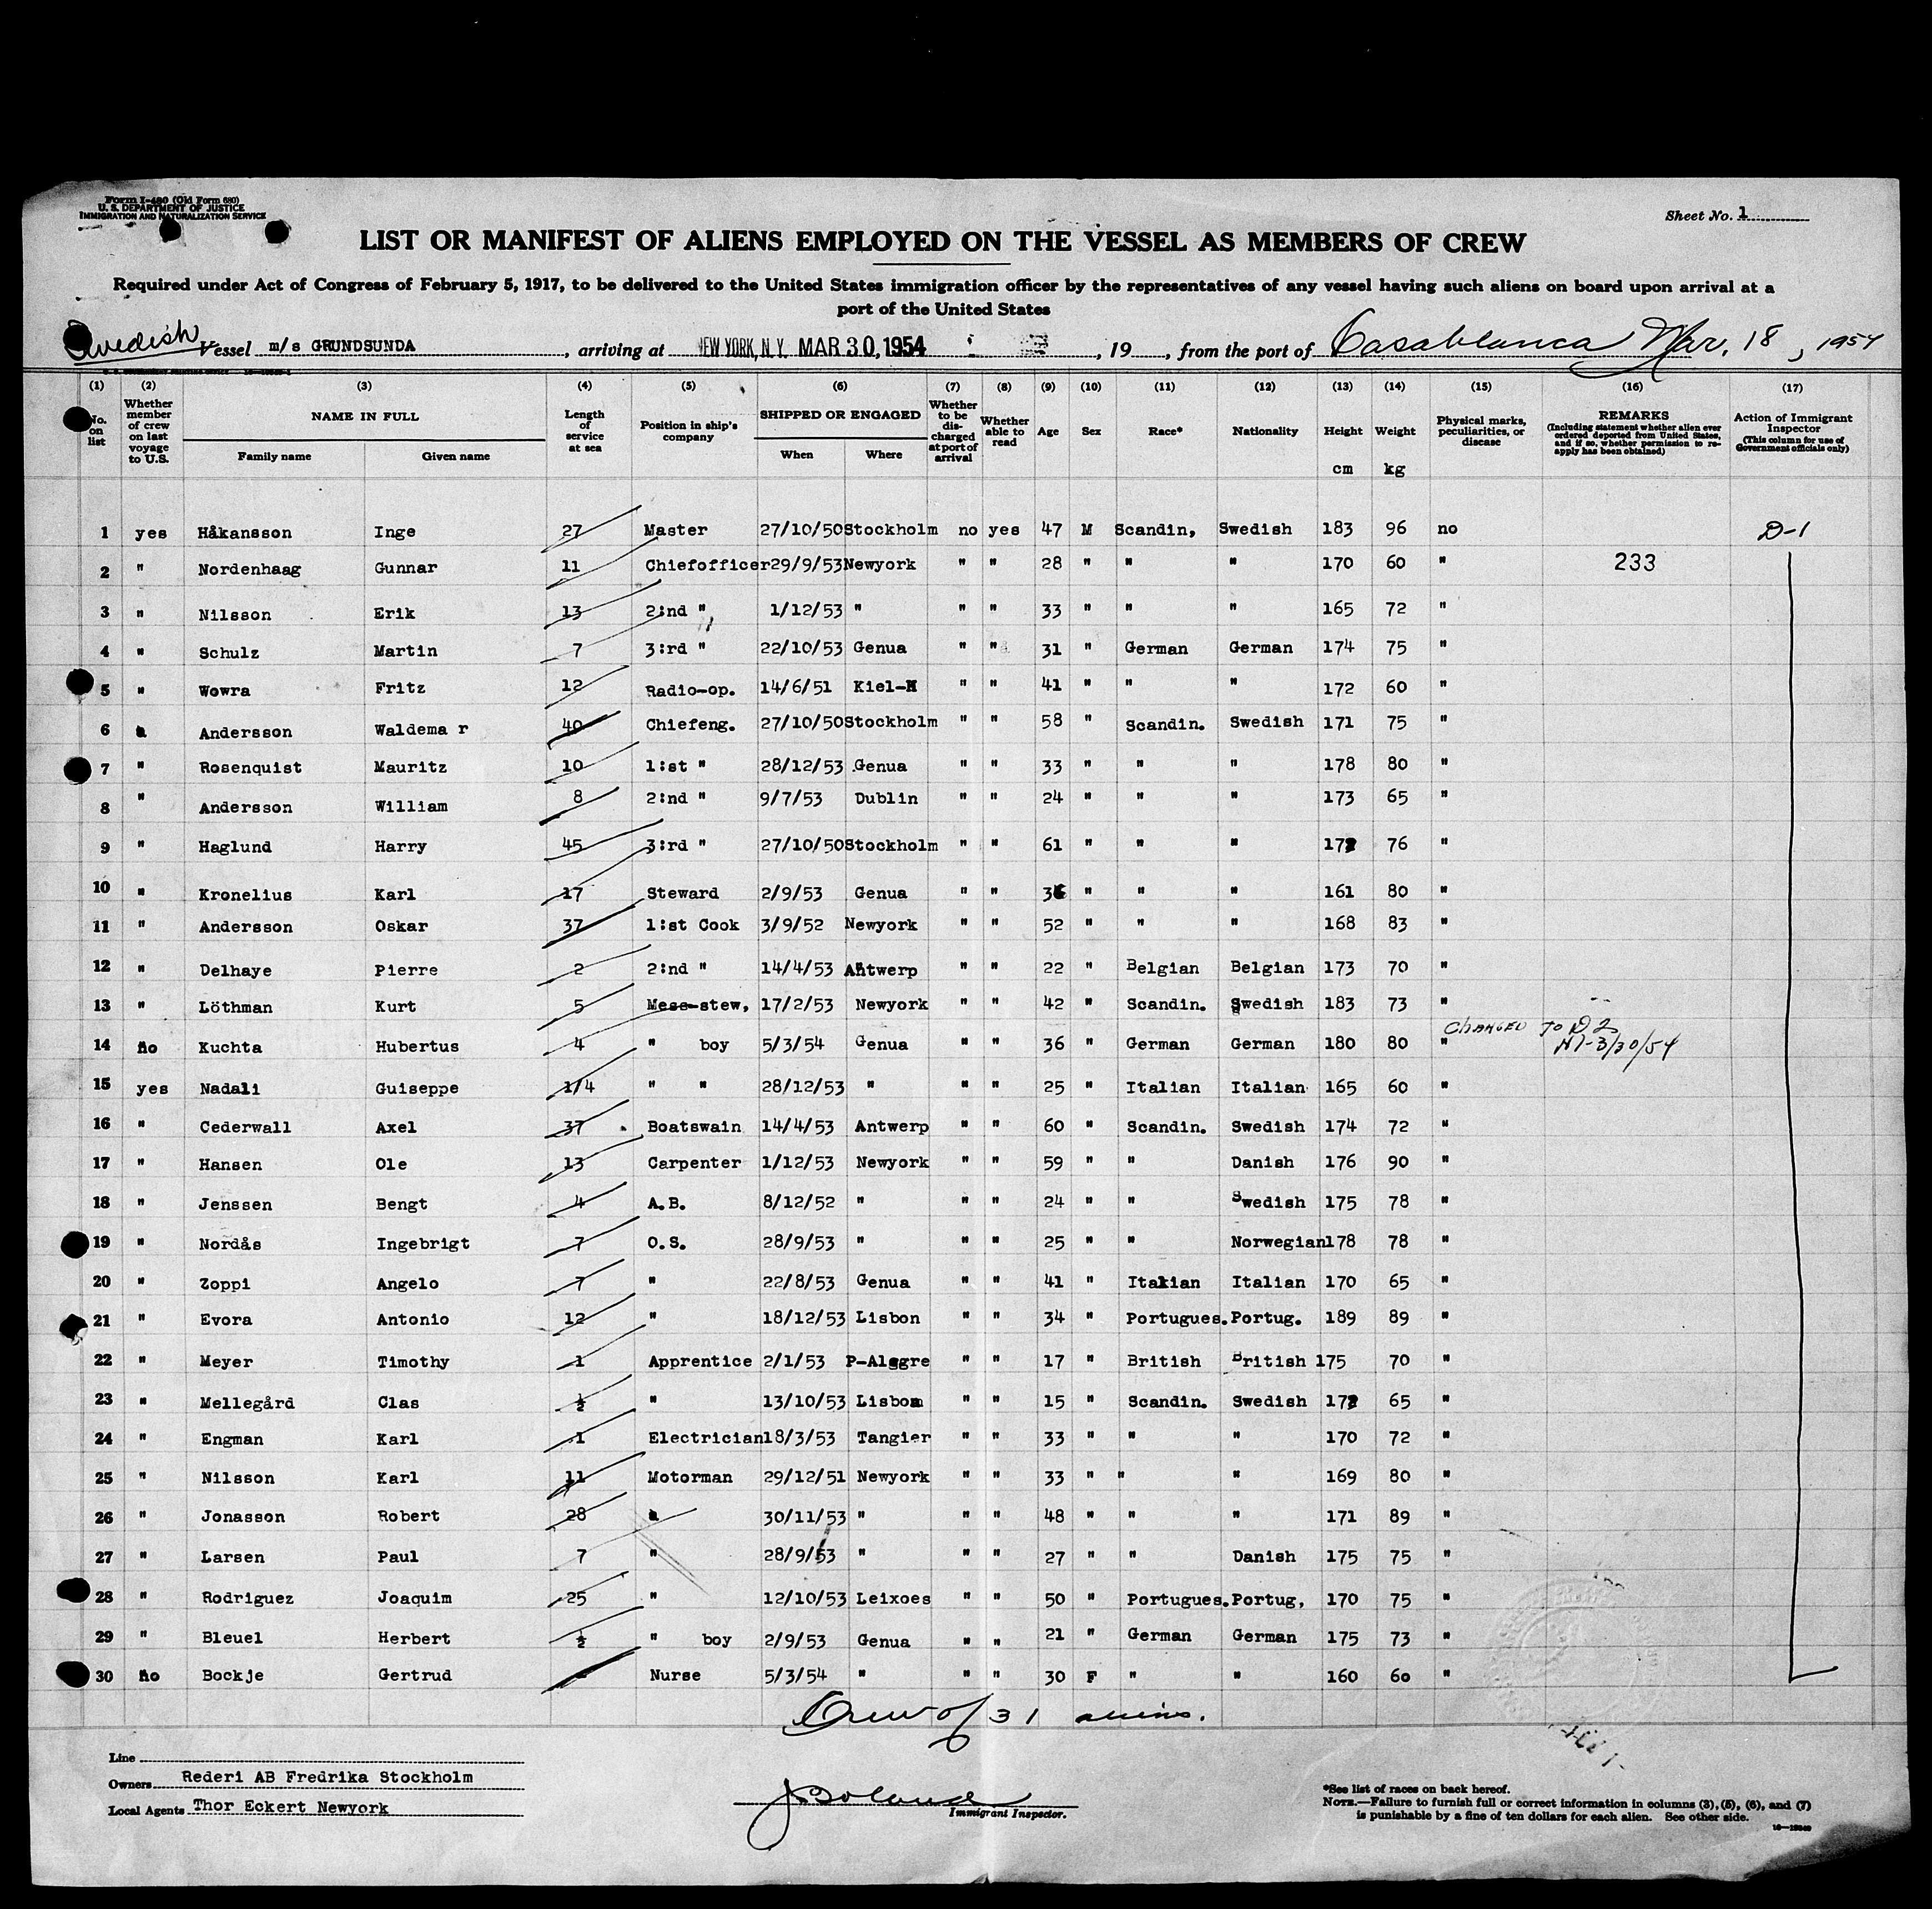 Form I-480 (Old Form 680)
U. S. DEPARTMENT OF JUSTICE
IMMIGRATION AND NATURALIZATION SERVICE
Sheet No. 1
LIST OR MANIFEST OF ALIENS EMPLOYED ON THE VESSEL AS MEMBERS OF CREW
Required under Act of Congress of February 5, 1917, to be delivered to the United States immigration officer by the representatives of any vessel having such aliens on board upon arrival at a
port of the United States
Swedish Vessel m/s GRUNDSUNDA, arriving at NEW YORK, N.Y. MAR 30, 1954, 19, from the port of Casablanca Mar. 18, 1954
(1) (2) (3) (4) (5) (6) (7) (8) (9) (10) (11) (12) (13) (14) (15) (16) (17)
No. on list Whether member of crew on last voyage to U.S. NAME IN FULL Family name Given name Length of service at sea Position in ship's company SHIPPED OR ENGAGED When Where Whether to be discharged at port of arrival Whether able to read Age Sex Race* Nationality Height cm Weight kg Physical marks, peculiarities, or disease REMARKS (Including statement whether alien ever ordered deported from United States, and if so, whether permission to re-apply has been obtained) Action of Immigrant Inspector (This column for use of Government officials only)
1 yes Håkansson Inge 27 Master 27/10/50 Stockholm no yes 47 M Scandin, Swedish 183 96 no D-1
2 " Nordenhaag Gunnar 11 Chiefofficer 29/9/53 Newyork " " 28 " " " 170 60 " 233
3 " Nilsson Erik 13 2:nd " 1/12/53 " " " 33 " " " 165 72 "
4 " Schulz Martin 7 3:rd " 22/10/53 Genua " " 31 " German German 174 75 "
5 " Wowra Fritz 12 Radio-op. 14/6/51 Kiel-H " " 41 " " " 172 60 "
6 " Andersson Waldema r 40 Chiefeng. 27/10/50 Stockholm " " 58 " Scandin. Swedish 171 75 "
7 " Rosenquist Mauritz 10 1:st " 28/12/53 Genua " " 33 " " " 178 80 "
8 " Andersson William 8 2:nd " 9/7/53 Dublin " " 24 " " " 173 65 "
9 " Haglund Harry 45 3:rd " 27/10/50 Stockholm " " 61 " " " 172 76 "
10 " Kronelius Karl 17 Steward 2/9/53 Genua " " 36 " " " 161 80 "
11 " Andersson Oskar 37 1:st Cook 3/9/52 Newyork " " 52 " " " 168 83 "
12 " Delhaye Pierre 2 2:nd " 14/4/53 Antwerp " " 22 " Belgian Belgian 173 70 "
13 " Löthman Kurt 5 Mess-stew, 17/2/53 Newyork " " 42 " Scandin. Swedish 183 73 "
CHANGED TO D2
14 no Kuchta Hubertus 4 " boy 5/3/54 Genua " " 36 " German German 180 80 " 3/30/54
15 yes Nadali Guiseppe 1/4 " " 28/12/53 " " " 25 " Italian Italian 165 60 "
16 " Cederwall Axel 37 Boatswain 14/4/53 Antwerp " " 60 " Scandin. Swedish 174 72 "
17 " Hansen Ole 13 Carpenter 1/12/53 Newyork " " 59 " " Danish 176 90 "
18 " Jenssen Bengt 4 A.B. 8/12/52 " " " 24 " " Swedish 175 78 "
19 " Nordås Ingebrigt 7 O.S. 28/9/53 " " " 25 " " Norwegian 178 78 "
20 " Zoppi Angelo 7 " 22/8/53 Genua " " 41 " Itakian Italian 170 65 "
21 " Evora Antonio 12 " 18/12/53 Lisbon " " 34 " Portugues. Portug. 189 89 "
22 " Meyer Timothy 1 Apprentice 2/1/53 P-Alegre " " 17 " British British 175 70 "
23 " Mellegård Clas ½ " 13/10/53 Lisbon " " 15 " Scandin. Swedish 172 65 "
24 " Engman Karl 1 Electrician 18/3/53 Tangier " " 33 " " " 170 72 "
25 " Nilsson Karl 11 Motorman 29/12/51 Newyork " " 33 " " " 169 80 "
26 " Jonasson Robert 28 " 30/11/53 " " " 48 " " " 171 89 "
27 " Larsen Paul 7 " 28/9/53 " " " 27 " " Danish 175 75 "
28 " Rodriguez Joaquim 25 " 12/10/53 Leixoes " " 50 " Portugues. Portug, 170 75 "
29 " Bleuel Herbert ½ " boy 2/9/53 Genua " " 21 " German German 175 73 "
30 no Bockje Gertrud Nurse 5/3/54 " " " 30 F " " 160 60 "
Crew of 31 aliens.
Line
Owners Rederi AB Fredrika Stockholm
Local Agents Thor Eckert Newyork
J Boland
Immigrant Inspector.
*See list of races on back hereof.
NOTE.—Failure to furnish full or correct information in columns (3), (5), (6), and (7)
is punishable by a fine of ten dollars for each alien. See other side.